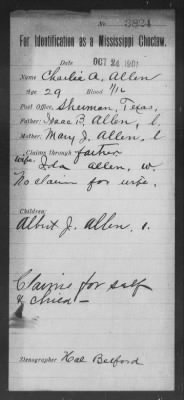 No 3824
For Identification as a Mississippi Choctaw.
Date
OCT 24 1901
Name Charlie A. Allen
Age 29 Blood 1/16
Post Office, Sherman, Texas,
Father: Isaac B. Allen, l.
Mother: Mary J. Allen, l
Claims through father
wife: Ida Allen, w.
No claim for wife,
Children:
Albert J. Allen, 1.
Claims for self
& child —
Stenographer Hal Belford